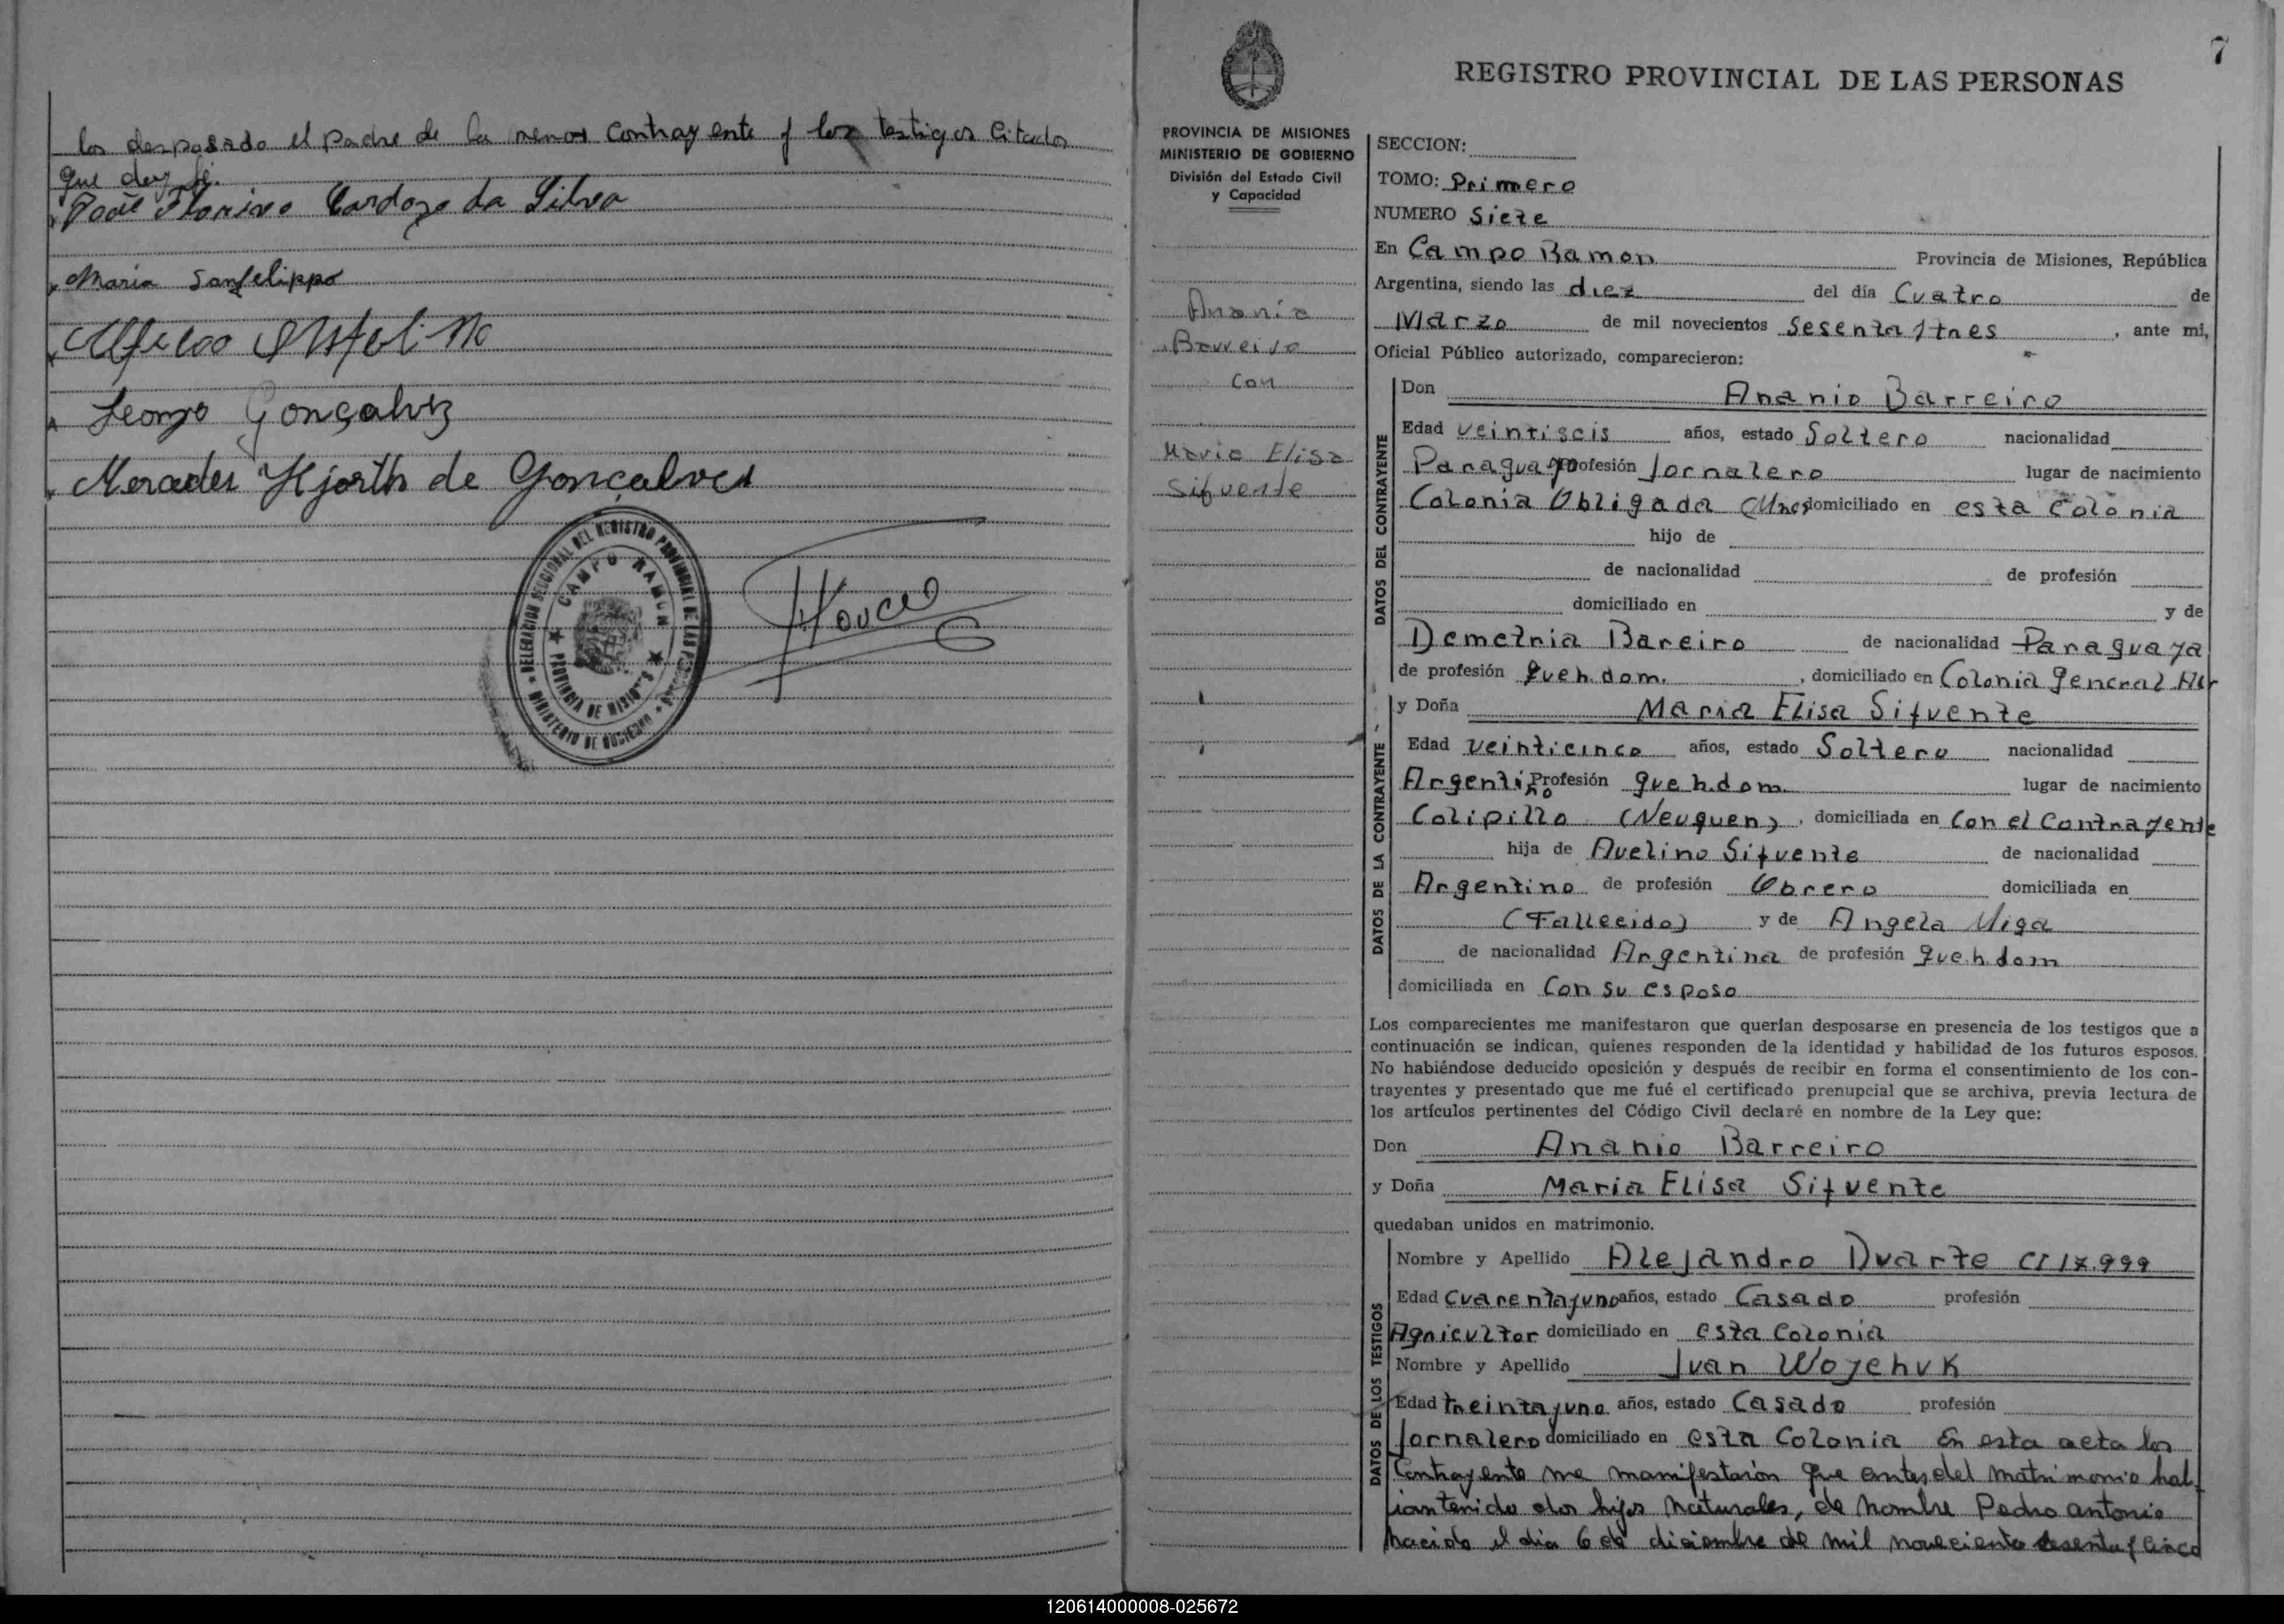 los desposado el padre de la menor Contrayente y los testigos Citados
que doy fé.
José Florisvo Cardozo da Silva
Maria Sanfelippo
Gonçalvez
Mercedes Hjorth de Gonçalves
DELEGACION SECCIONAL DEL REGISTRO PROVINCIAL DE LAS PERSONAS
CAMPO RAMON
PROVINCIA DE MISIONES
MINISTERIO DE GOBIERNO
7
REGISTRO PROVINCIAL DE LAS PERSONAS
PROVINCIA DE MISIONES
MINISTERIO DE GOBIERNO
División del Estado Civil
y Capacidad
Anania
Barreiro
con
Maria Elisa
Sifuente
SECCION:
TOMO: Primero
NUMERO Siete
En Campo Ramon Provincia de Misiones, República
Argentina, siendo las diez del día Cuatro de
Marzo de mil novecientos Sesenta y tres, ante mi,
Oficial Público autorizado, comparecieron:
DATOS DEL CONTRAYENTE
Don Ananio Barreiro
Edad veintiseis años, estado Soltero nacionalidad
Paraguayo profesión Jornalero lugar de nacimiento
Colonia Obligada (Mnes) domiciliado en esta Colonia
hijo de
de nacionalidad de profesión
domiciliado en y de
Demetria Bareiro de nacionalidad Paraguaya
de profesión Queh. dom. , domiciliado en Colonia General
DATOS DE LA CONTRAYENTE -
y Doña Maria Elisa Sifuente
Edad veinticinco años, estado Soltero nacionalidad
Argentino Profesión queh.dom. lugar de nacimiento
Colipillo (Neuquen), domiciliada en Con el Contrayente
hija de Avelino Sifuente de nacionalidad
Argentino de profesión Obrero domiciliada en
(Fallecido) y de Angela
de nacionalidad Argentina de profesión Queh.dom
domiciliada en Con su esposo
Los comparecientes me manifestaron que querían desposarse en presencia de los testigos que a
continuación se indican, quienes responden de la identidad y habilidad de los futuros esposos.
No habiéndose deducido oposición y después de recibir en forma el consentimiento de los con-
trayentes y presentado que me fué el certificado prenupcial que se archiva, previa lectura de
los artículos pertinentes del Código Civil declaré en nombre de la Ley que:
Don Ananio Barreiro
y Doña Maria Elisa Sifuente
quedaban unidos en matrimonio.
DATOS DE LOS TESTIGOS
Nombre y Apellido Alejandro Duarte CI 17.999
Edad Cuarenta y uno años, estado Casado profesión
Agricultor domiciliado en esta Colonia
Nombre y Apellido Juan Woychuk
Edad treinta y uno años, estado Casado profesión
Jornalero domiciliado en esta Colonia En esta acta los
Contrayente me manifestarón que antes del matrimonio hab
ian tenido dos hijos Naturales, de nombre Pedro antonio
Nacido el dia 6 de diciembre de mil noveciento sesenta y Cinco
120614000008-025672